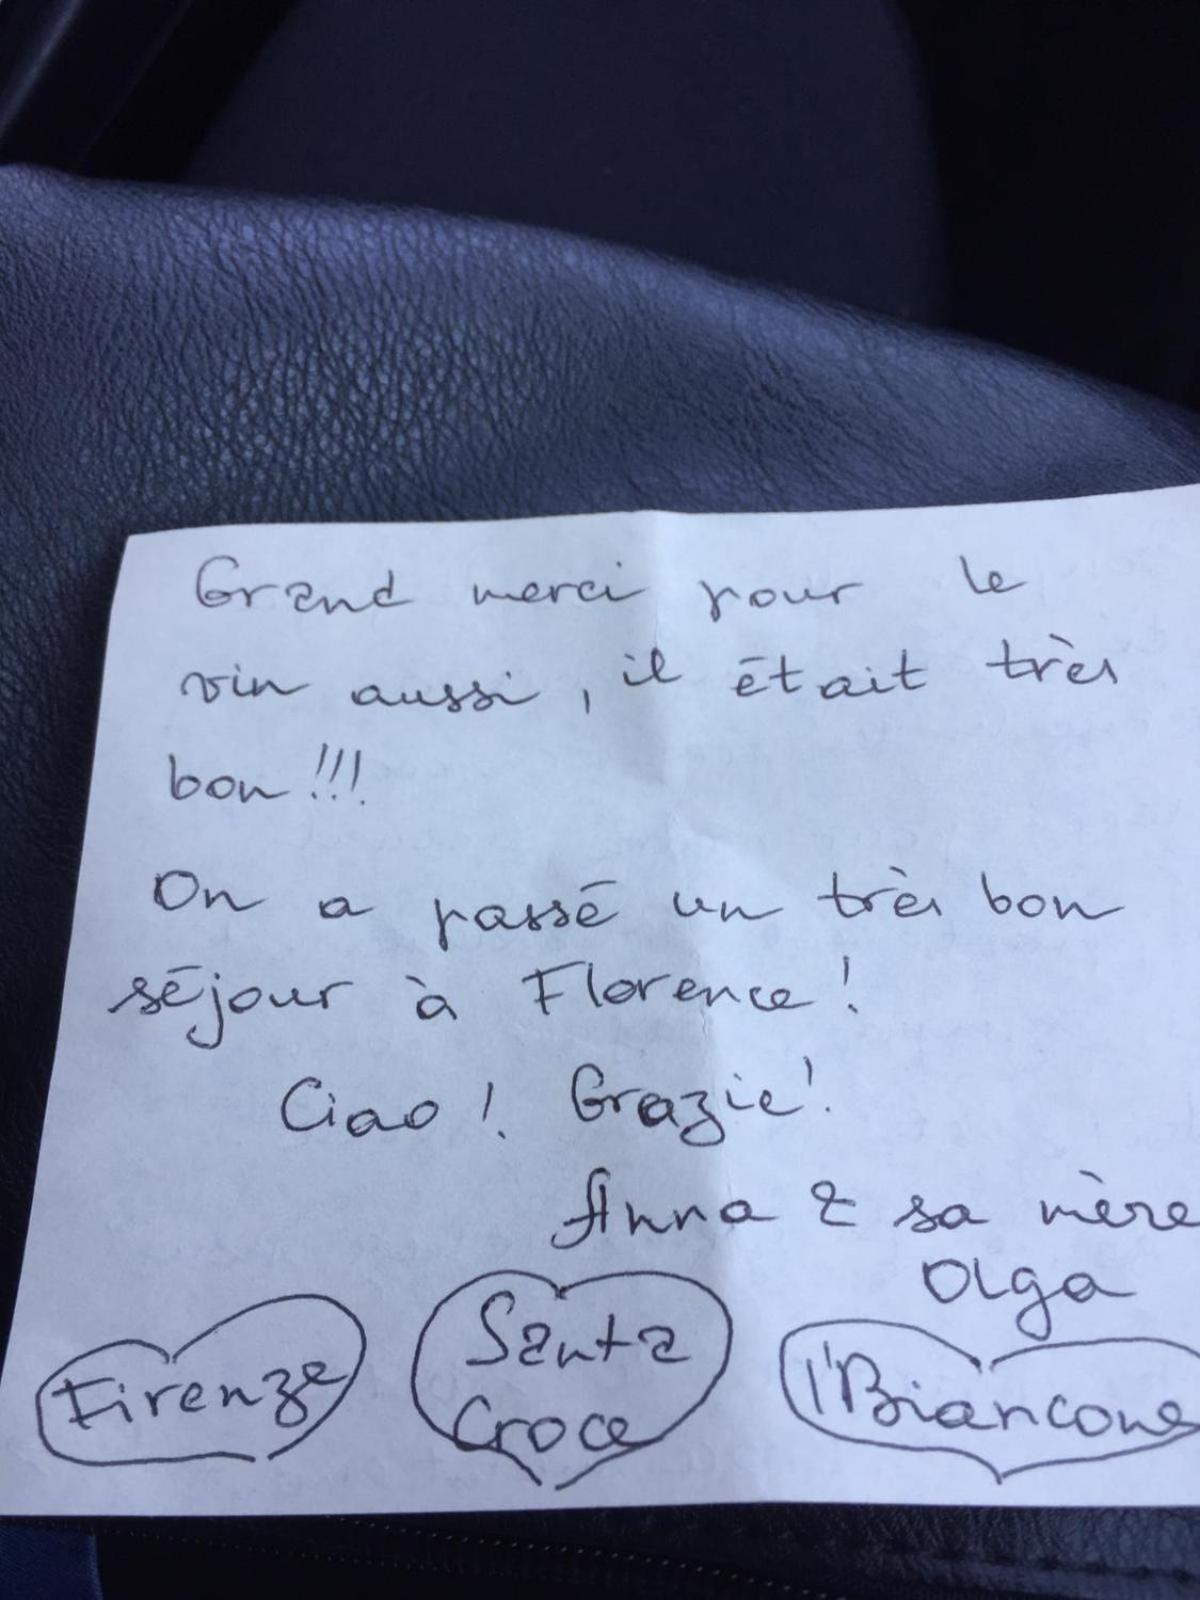 Grand merci pour le
vin aussi, il était très
bon!!!
On a passé un très bon
séjour à Florence!
Ciao! Grazie!
Anna & sa mère
Olga
Firenze
Santa
Croce
l'Biancone